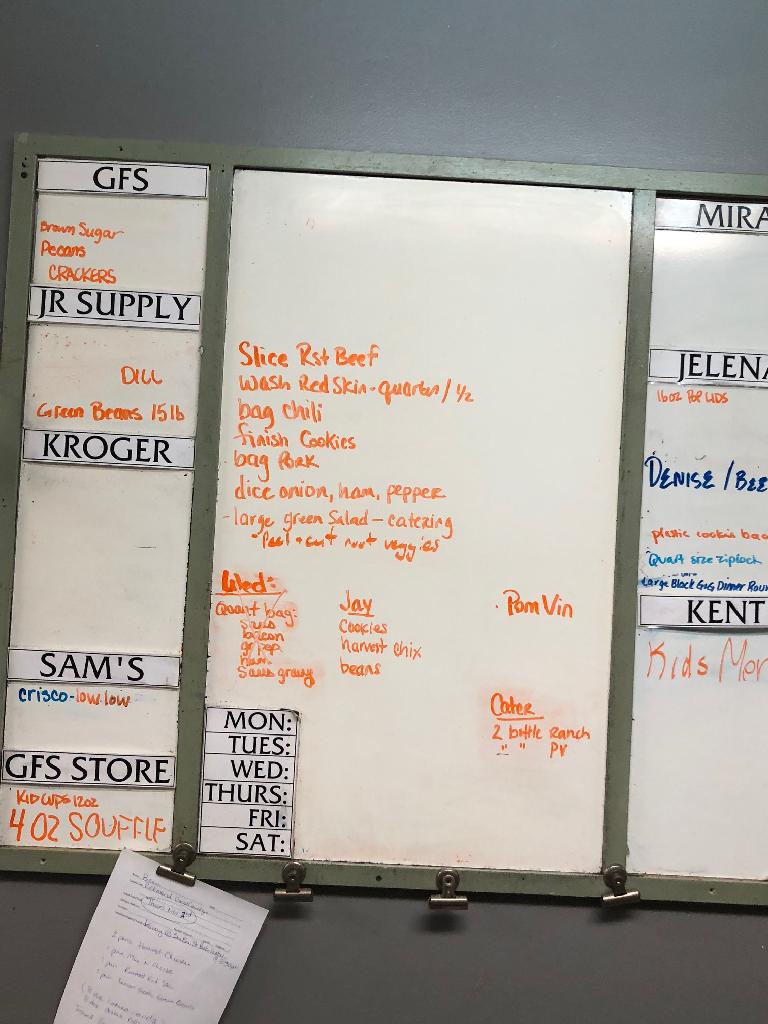 GFS
Brown Sugar
Pecans
CRACKERS
JR SUPPLY
DILL
Green Beans 15lb
KROGER
SAM'S
crisco-low.low.
GFS STORE
KID CUPS 12oz
4 OZ SOUFFLE
Slice Rst Beef
Wash RedSkin-quarter/ 1/2
bag chili
finish Cookies
bag Pork
dice onion, ham, pepper
-large green Salad - catering
Peel + cut root veggies
Wed:
Quart bag:
Saus
bacon
gr pep
ham
Saus gravy
Jay
Cookies
harvest chix
beans
. Pom Vin
Cater
2 bottle Ranch
" " PV
MON:
TUES:
WED:
THURS:
FRI:
SAT:
MIRA
JELENA
16oz POP LIDS
DENISE / BEE
plastic cookie bag
Quart size ziplock
Large Black G&G Dinner Rou
KENT
Kids Men